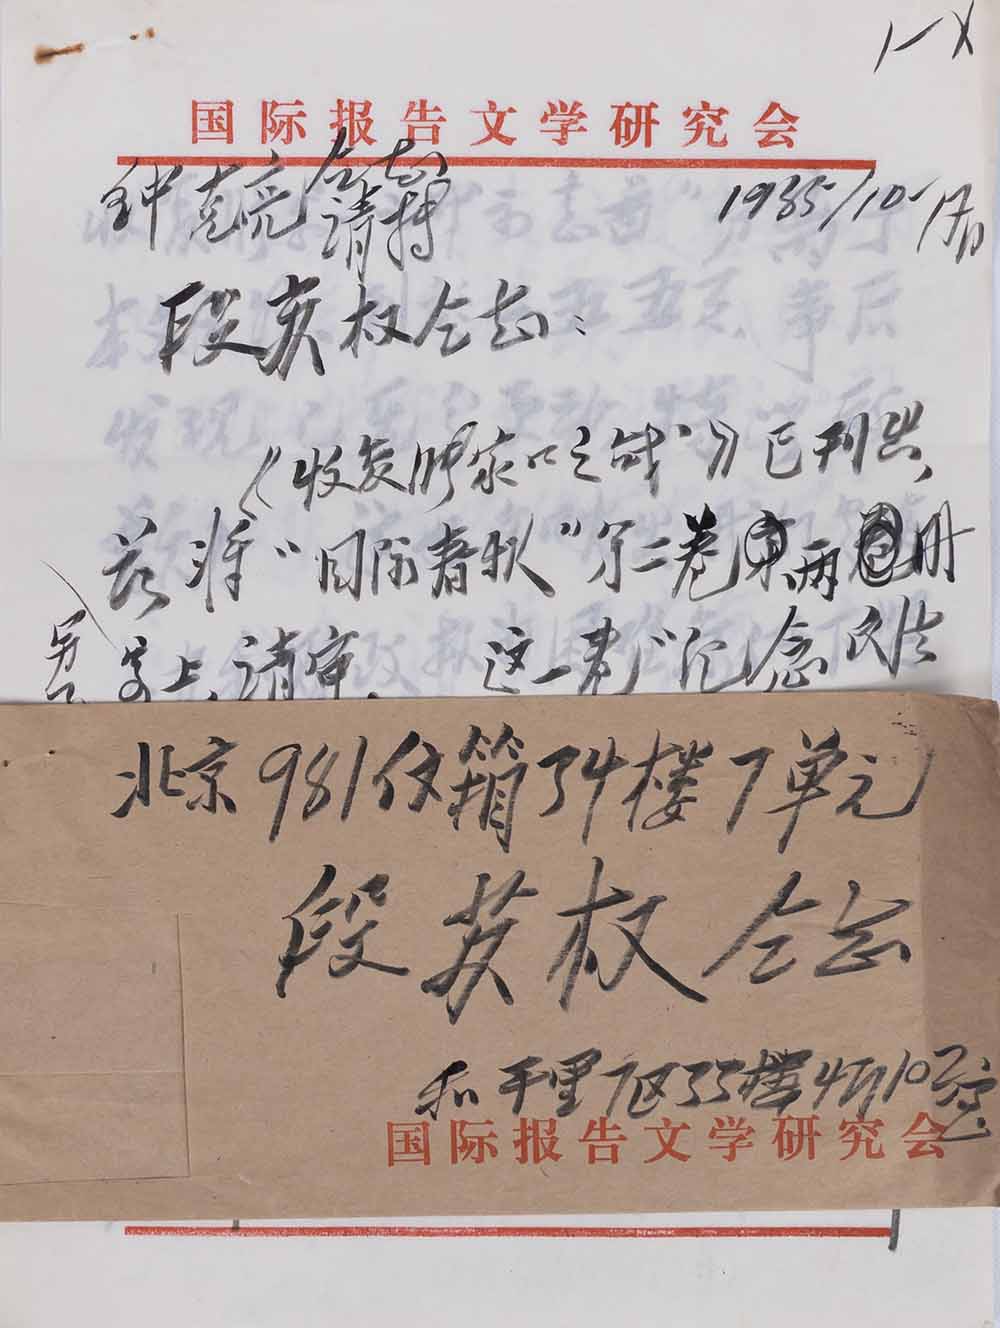 1—X
国际报告文学研究会
钟克亮同志
请转
1985/10-17日
段苏权同志：
《收复张家口之战》已刊出，
兹将“国际春秋”第二卷两册
寄上，请审。这一卷“纪念
另
北京981信箱34楼7单元
段苏权同志
和平里7区35楼4门10号
国际报告文学研究会